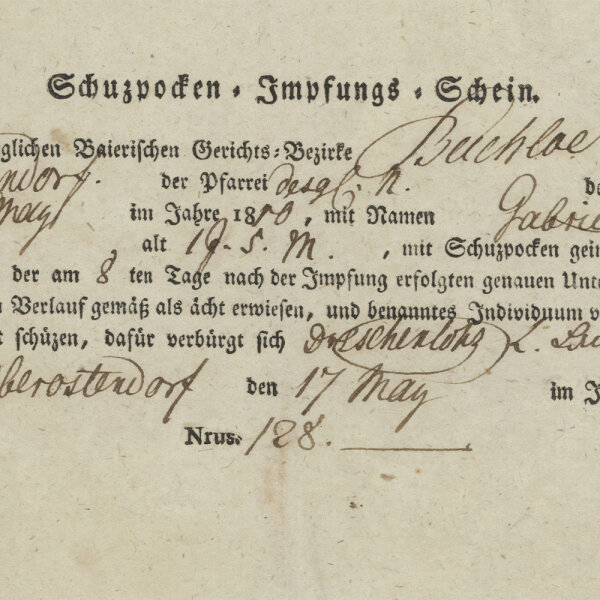 Schuzpocken - Impfungs - Schein.
glichen Baierischen Gerichts-Bezirke Buchloe
ndorf. der Pfarrei desgl. N.
May im Jahre 1810, mit Namen Gabrie
, alt 1 J. 5. M. , mit Schuzpocken gei
der am 8 ten Tage nach der Impfung erfolgten genauen Unte
Verlauf gemäß als ächt erwiesen, und benanntes Individuum v
t schüzen, dafür verbürgt sich
berostendorf den 17 May im J
Nrus. 128.